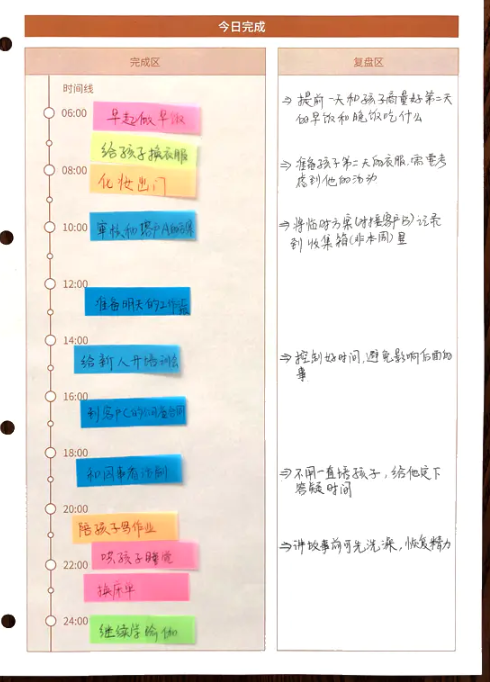 今日完成
完成区
复盘区
时间线
06:00
早起做早饭
给孩子换衣服
08:00
化妆出门
10:00
审核和客户A的方案
12:00
准备明天的工作
14:00
给新人开培训会
16:00
18:00
和同事看话剧
20:00
陪孩子写作业
哄孩子睡觉
22:00
换床单
24:00
继续学瑜伽
⇒ 提前一天和孩子商量好第二天
的早饭和晚饭吃什么
⇒ 准备孩子第二天的衣服,需考
虑到他的活动
⇒ 将临时方案(对接客户B)记录
到收集箱(非本周)里
⇒ 控制好时间,避免影响后面的
事
⇒ 不用一直陪孩子,给他定下
答疑时间
⇒ 讲故事前可先洗澡,恢复精力